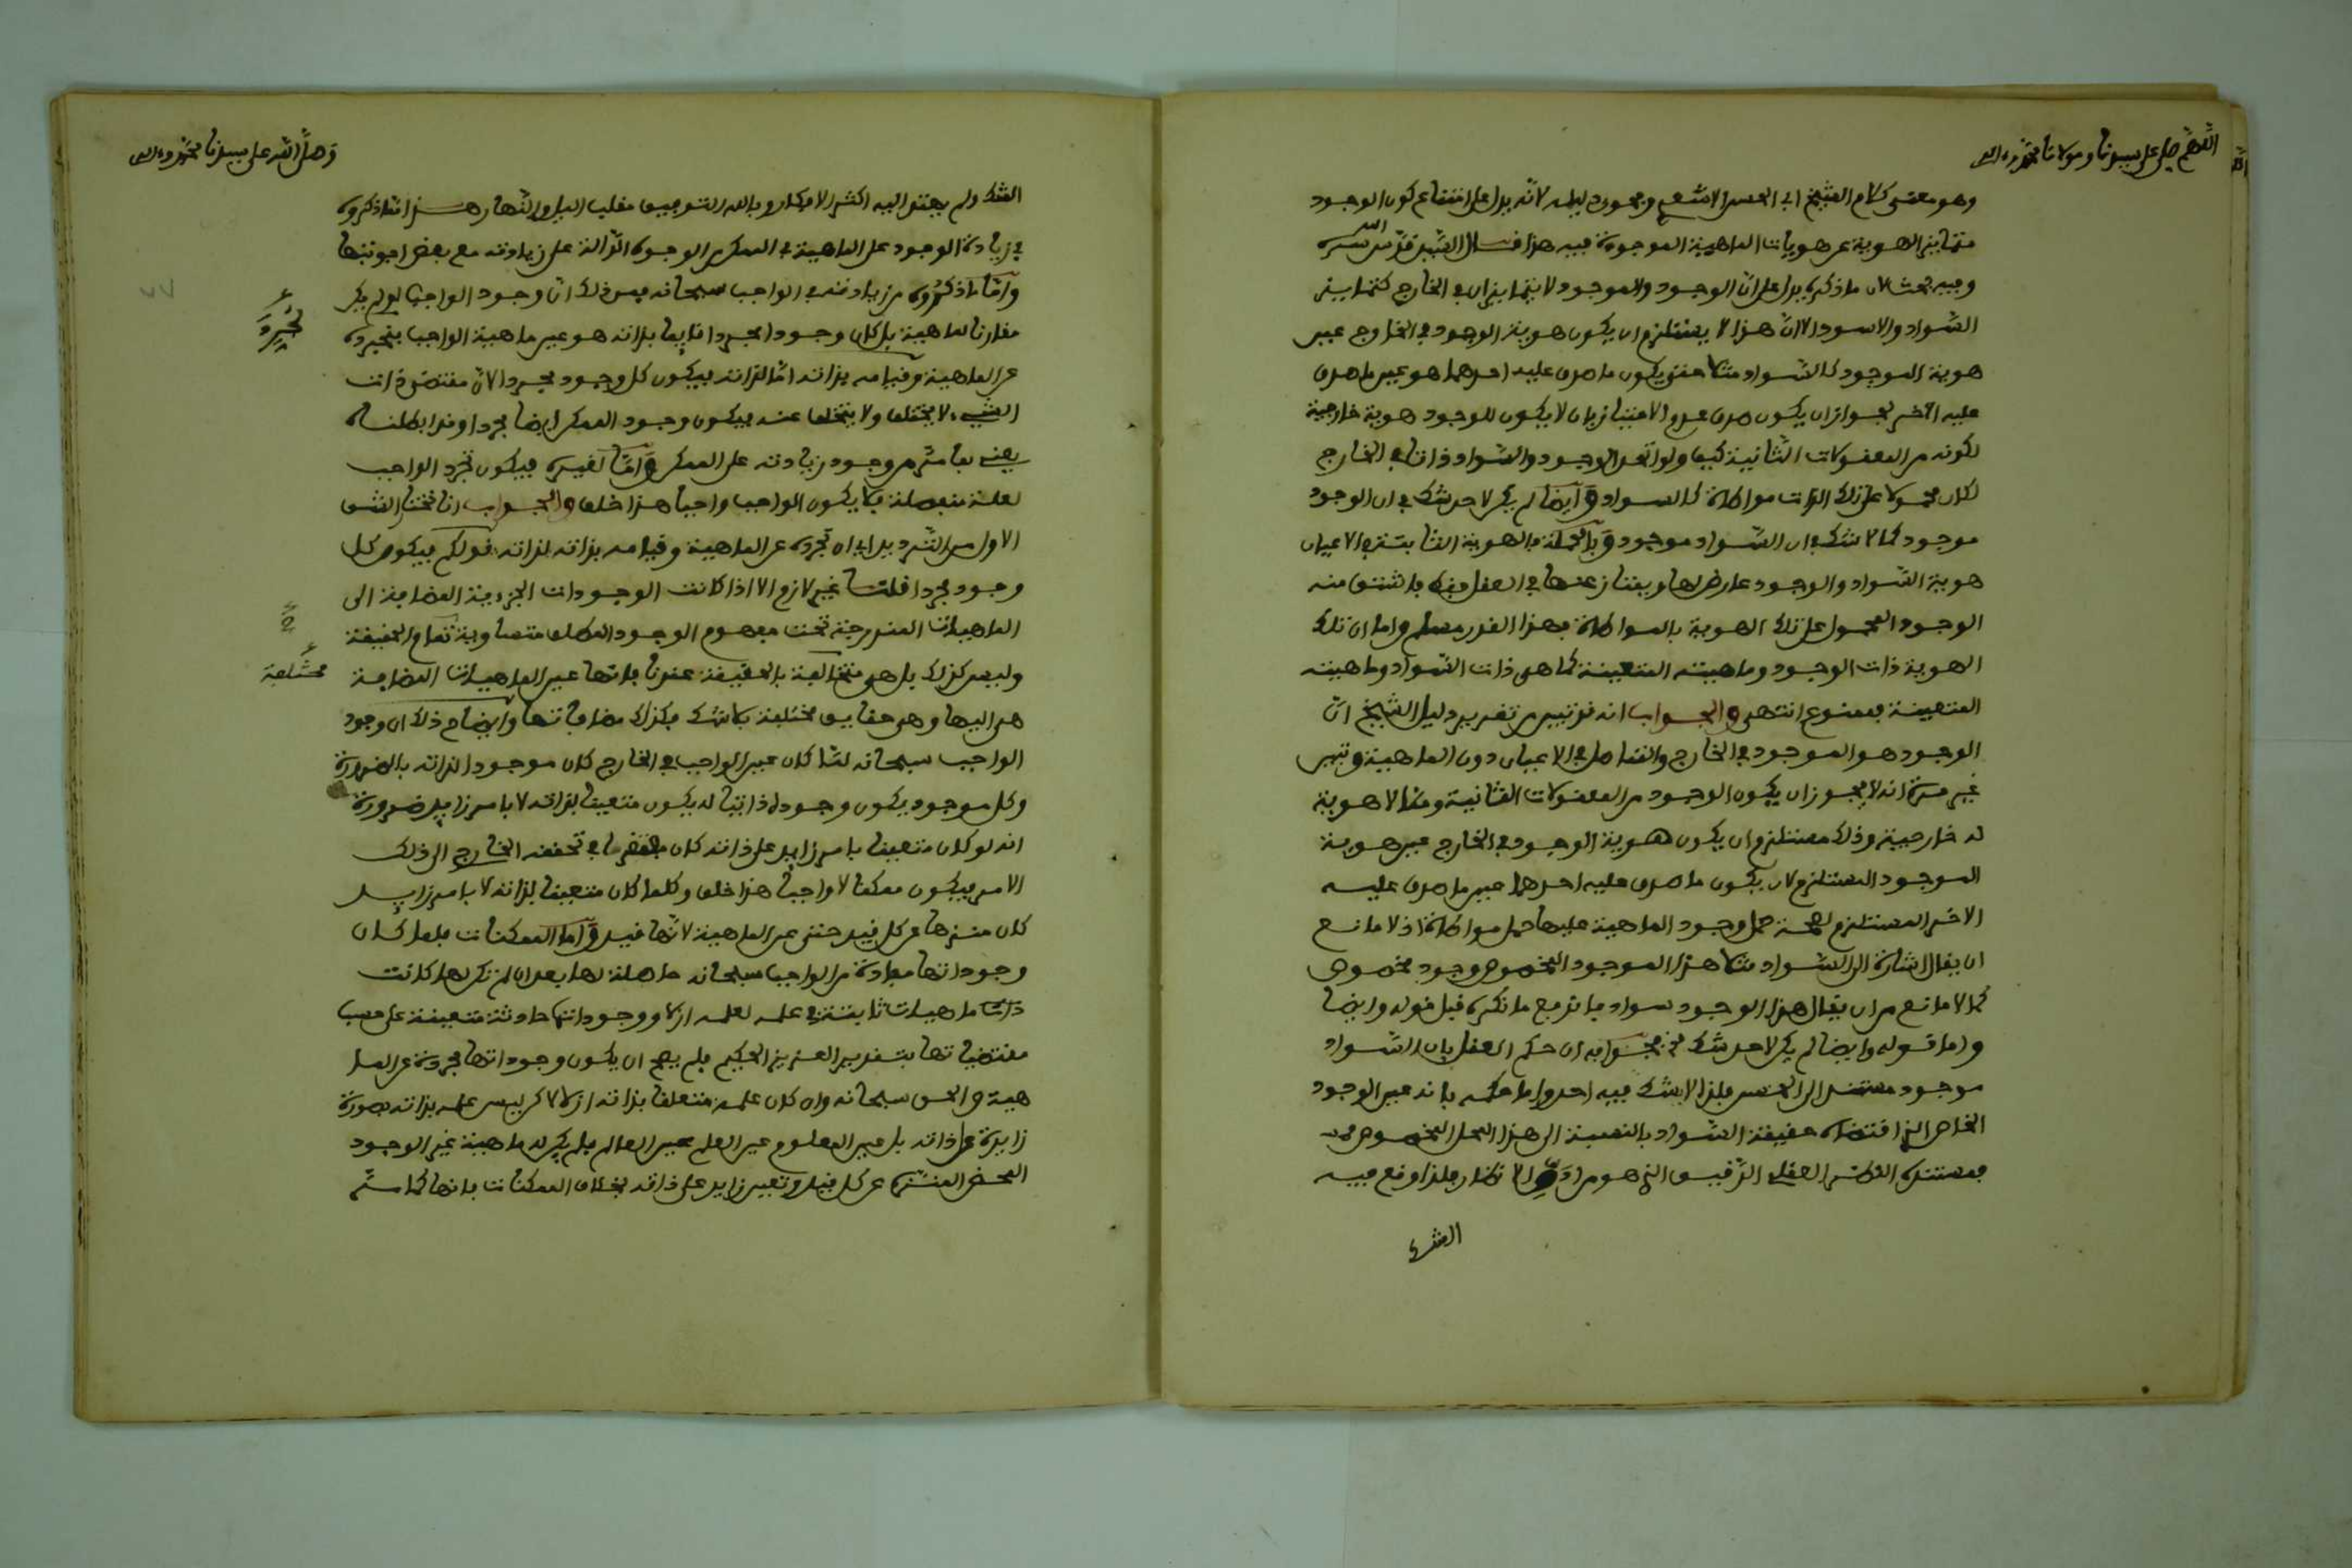 اللهم صل على سيدنا ومولانا محمد وءاله
وهو معنى كلام الشيخ ابي الحسن الاشعري ومحصول دليله لانه يدل على امتناع كون الوجود
متمايز الهوية عن هويات الماهية الموجودة فيه هذا قال السيد قدس الله سره
وفيه بحث لان ما ذكره يدل على ان الوجود والموجود لا يتمايزان في الخارج كتمايز
السواد والاسود الا ان هذا لا يستلزم ان يكون هوية الوجود في الخارج عين
هوية الموجود كالسواد مثلا حتى يكون ما صدق عليه احدهما هو عين ما صدق
عليه الآخر لجواز ان يكون صدق عدم الامتياز بان لا يكون للوجود هوية خارجية
لكونه من المعقولات الثانية كيف ولو اتحد الوجود والسواد ذاتا في الخارج
لكان محمولا على تلك الذات مواطاة كالسواد وايضا لم يكن لاحد شك في ان الوجود
موجود كما لا شك في ان السواد موجود وبالجملة فالهوية الثابتة في الاعيان
هوية السواد والوجود عارض لها ويمتاز عنها في العقل فقط واشتق منه
الوجود المحمول على تلك الهوية بالمواطاة فهذا القدر مسلم واما ان تلك
الهوية ذات الوجود وماهيته المتعينة كما هي ذات السواد وماهيته
المتعينة فممنوع انتهى والجواب انه قد تبين من تقرير دليل الشيخ ان
الوجود هو الموجود في الخارج والمتاصل في الاعيان دون الماهية وتبين
غير مرة انه لا يجوز ان يكون الوجود من المعقولات الثانية ومما لا هوية
له خارجية وذلك مستلزم ان يكون هوية الوجود في الخارج عين هوية
الموجود المستلزم لان يكون ما صدق عليه احدهما عين ما صدق عليه
الاخر المستلزم لصحة حمل وجود الماهية عليها حمل مواطاة اذ لا مانع
ان يقال اشارة الى السواد مثلا هذا الموجود المخصوص وجود مخصوص
كما لا مانع من ان يقال هذا الوجود سواد فاندفع ما ذكره قبل قوله وايضا
واما قوله وايضا لم يكن لاحد شك فجوابه ان حكم العقل بان السواد
موجود مستند الى الحس فلذا لا يشك فيه احد واما حكمه بانه عين الوجود
الخاص الذي اقتضاه حقيقة السواد بالنسبة الى هذا المحل المخصوص
فمستنده النظر العقلي الدقيق الذي هو من ادق الانظار فلذا وقع فيه
الشك
وصلى الله على سيدنا محمد وءاله
الشك ولم يهتد اليه اكثر الافكار وبالله التوفيق مقلب اليل والنهار هذا ما ذكروه
في زيادة الوجود على الماهية في الممكن الوجوه الدالة على زيادته مع بعض اجوبتها
واما ما ذكروه من زيادته في الواجب سبحانه فمن ذلك ان وجود الواجب لو لم يكن
مقارنا لماهية بل كان وجودا مجردا قايما بذاته هو عين ماهية الواجب فتجرده
عن الماهية وقيامه بذاته اما لذاته فيكون كل وجود مجردا لان مقتضى ذات
الشيء لا يختلف ولا يتخلف عنه فيكون وجود الممكن ايضا مجردا وقد ابطلناه
يعني بما مر من وجود زيادته على الممكن واما لغيره فيكون تجرد الواجب
لعلة منفصلة فلا يكون الواجب واجبا هذا خلف والجواب انا نختار الشق
الاول من الترديد اي ان تجرده عن الماهية وقيامه بذاته لذاته قولكم فيكون كل
وجود مجردا قلنا غير لازم الا اذا كانت الوجودات الجزءية المضافة الى
الماهيات المندرجة تحت مفهوم الوجود المطلق متساوية تمام الحقيقة
وليس كذلك بل هي متخالفة بالحقيقة عندنا فانها عين الماهيات المضافة
هي اليها وهي حقايق مختلفة بلا شك فكذلك مضافاتها وايضاح ذلك ان وجود
الواجب سبحانه لما كان عين الواجب في الخارج كان موجودا لذاته بالضرورة
وكل موجود يكون وجوده ذاتيا له يكون متعينا لذاته لا بامر زايد ضرورة
انه لو كان متعينا بامر زايد على ذاته كان مفتقرا في تحققه الخارج الى ذلك
الامر فيكون ممكنا لا واجبا هذا خلف وكلما كان متعينا لذاته لا بامر زايد
كان منزها عن كل قيد حتى عن الماهية لانها قيد واما الممكنات فلما كان
وجوداتها مفادة من الواجب سبحانه حاصلة لها بعد ان لم تكن لها كانت
ذات ماهيات ثابتة في علمه تعلمه ازلا ووجوداتها حادثة متعينة على حسب
مقتضياتها بتقدير العزيز الحكيم فلم يصح ان يكون وجوداتها مجردة عن الما
هية والحق سبحانه وان كان علمه متعلقا بذاته ازلا لاكن ليس علمه بذاته صورة
زايدة على ذاته بل عين المعلوم عين العلم عين العالم فلم يكن له ماهية غير الوجود
المحض المنزه عن كل قيد وتعين زايد على ذاته بخلاف الممكنات فانها كما ستر
تجرده
مختلفة